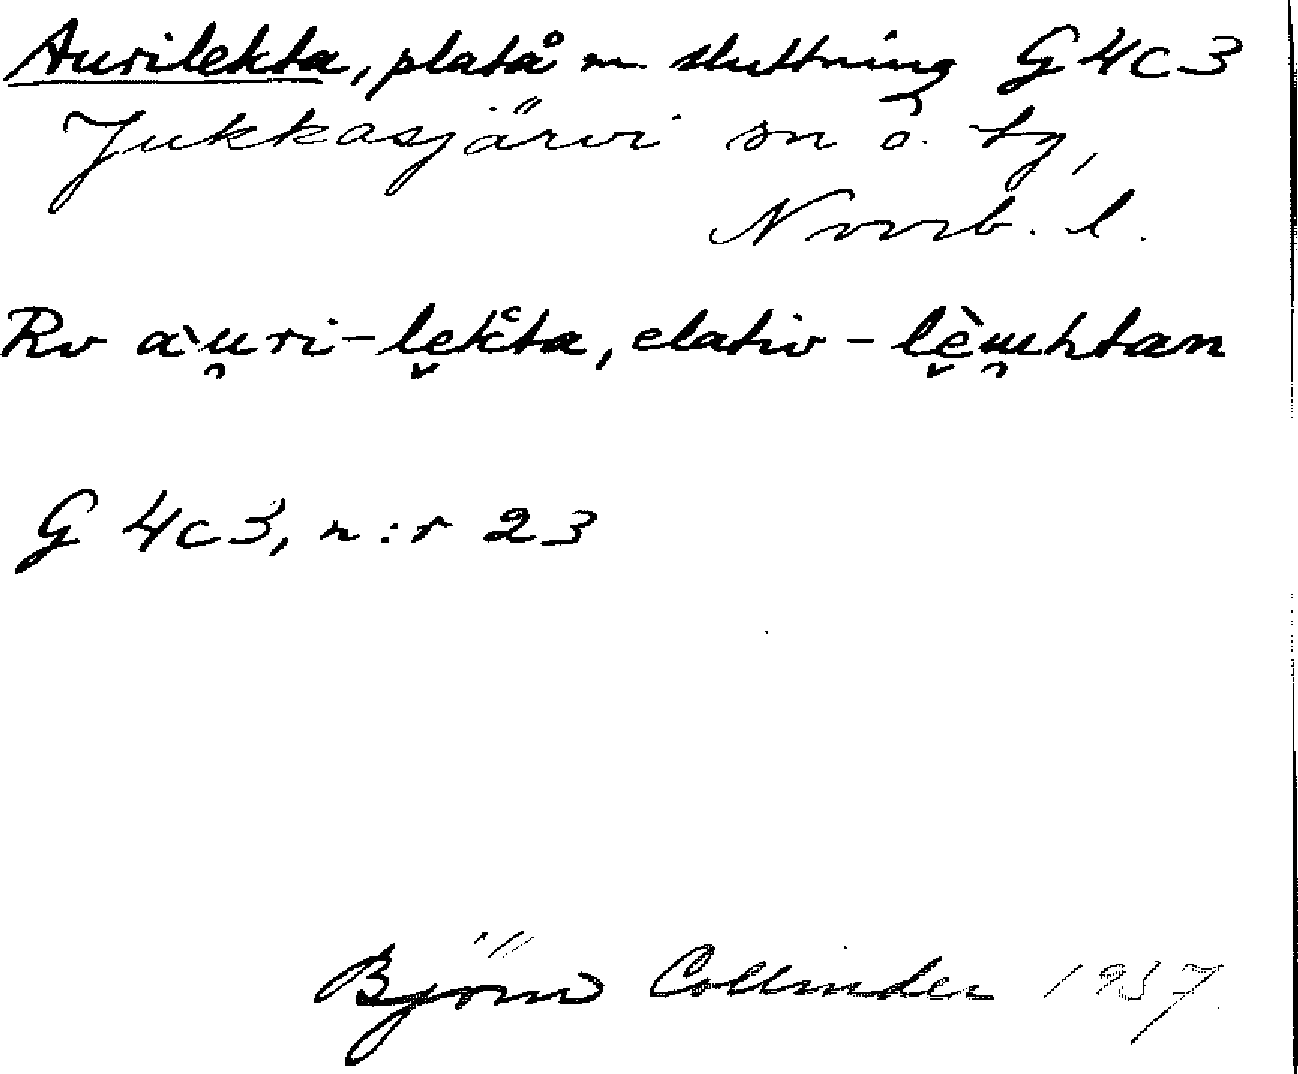 Aurilekta, platå m sluttning G 4c3
Jukkasjärvi sn o. tg,
Norrb. l.
Rv àu̯ri-lę̌kta, elativ -lę̌̀u̯htan
G 4c3, n:r 23
Björn Collinder 1937